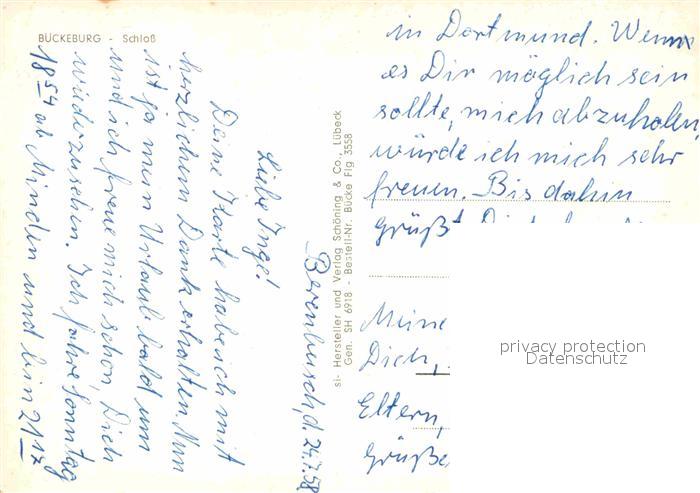 BÜCKEBURG - Schloß
Berenbusch, d. 24.7.58
Liebe Inge!
Deine Karte habe ich mit
herzlichem Dank erhalten. Nun
ist ja mein Urlaub bald um
und ich freue mich schon, Dich
wiederzusehen. Ich fahre Sonntag
18 54 ab Minden und bin 21 17
in Dortmund. Wenn
es Dir möglich sein
sollte, mich abzuholen,
würde ich mich sehr
freuen. Bis dahin
grüßt
Dich,
Eltern,
si- Hersteller und Verlag Schöning & Co., Lübeck
Gen. SH 6918 - Bestell-Nr. Bücke Flg 3558
privacy protection
Datenschutz